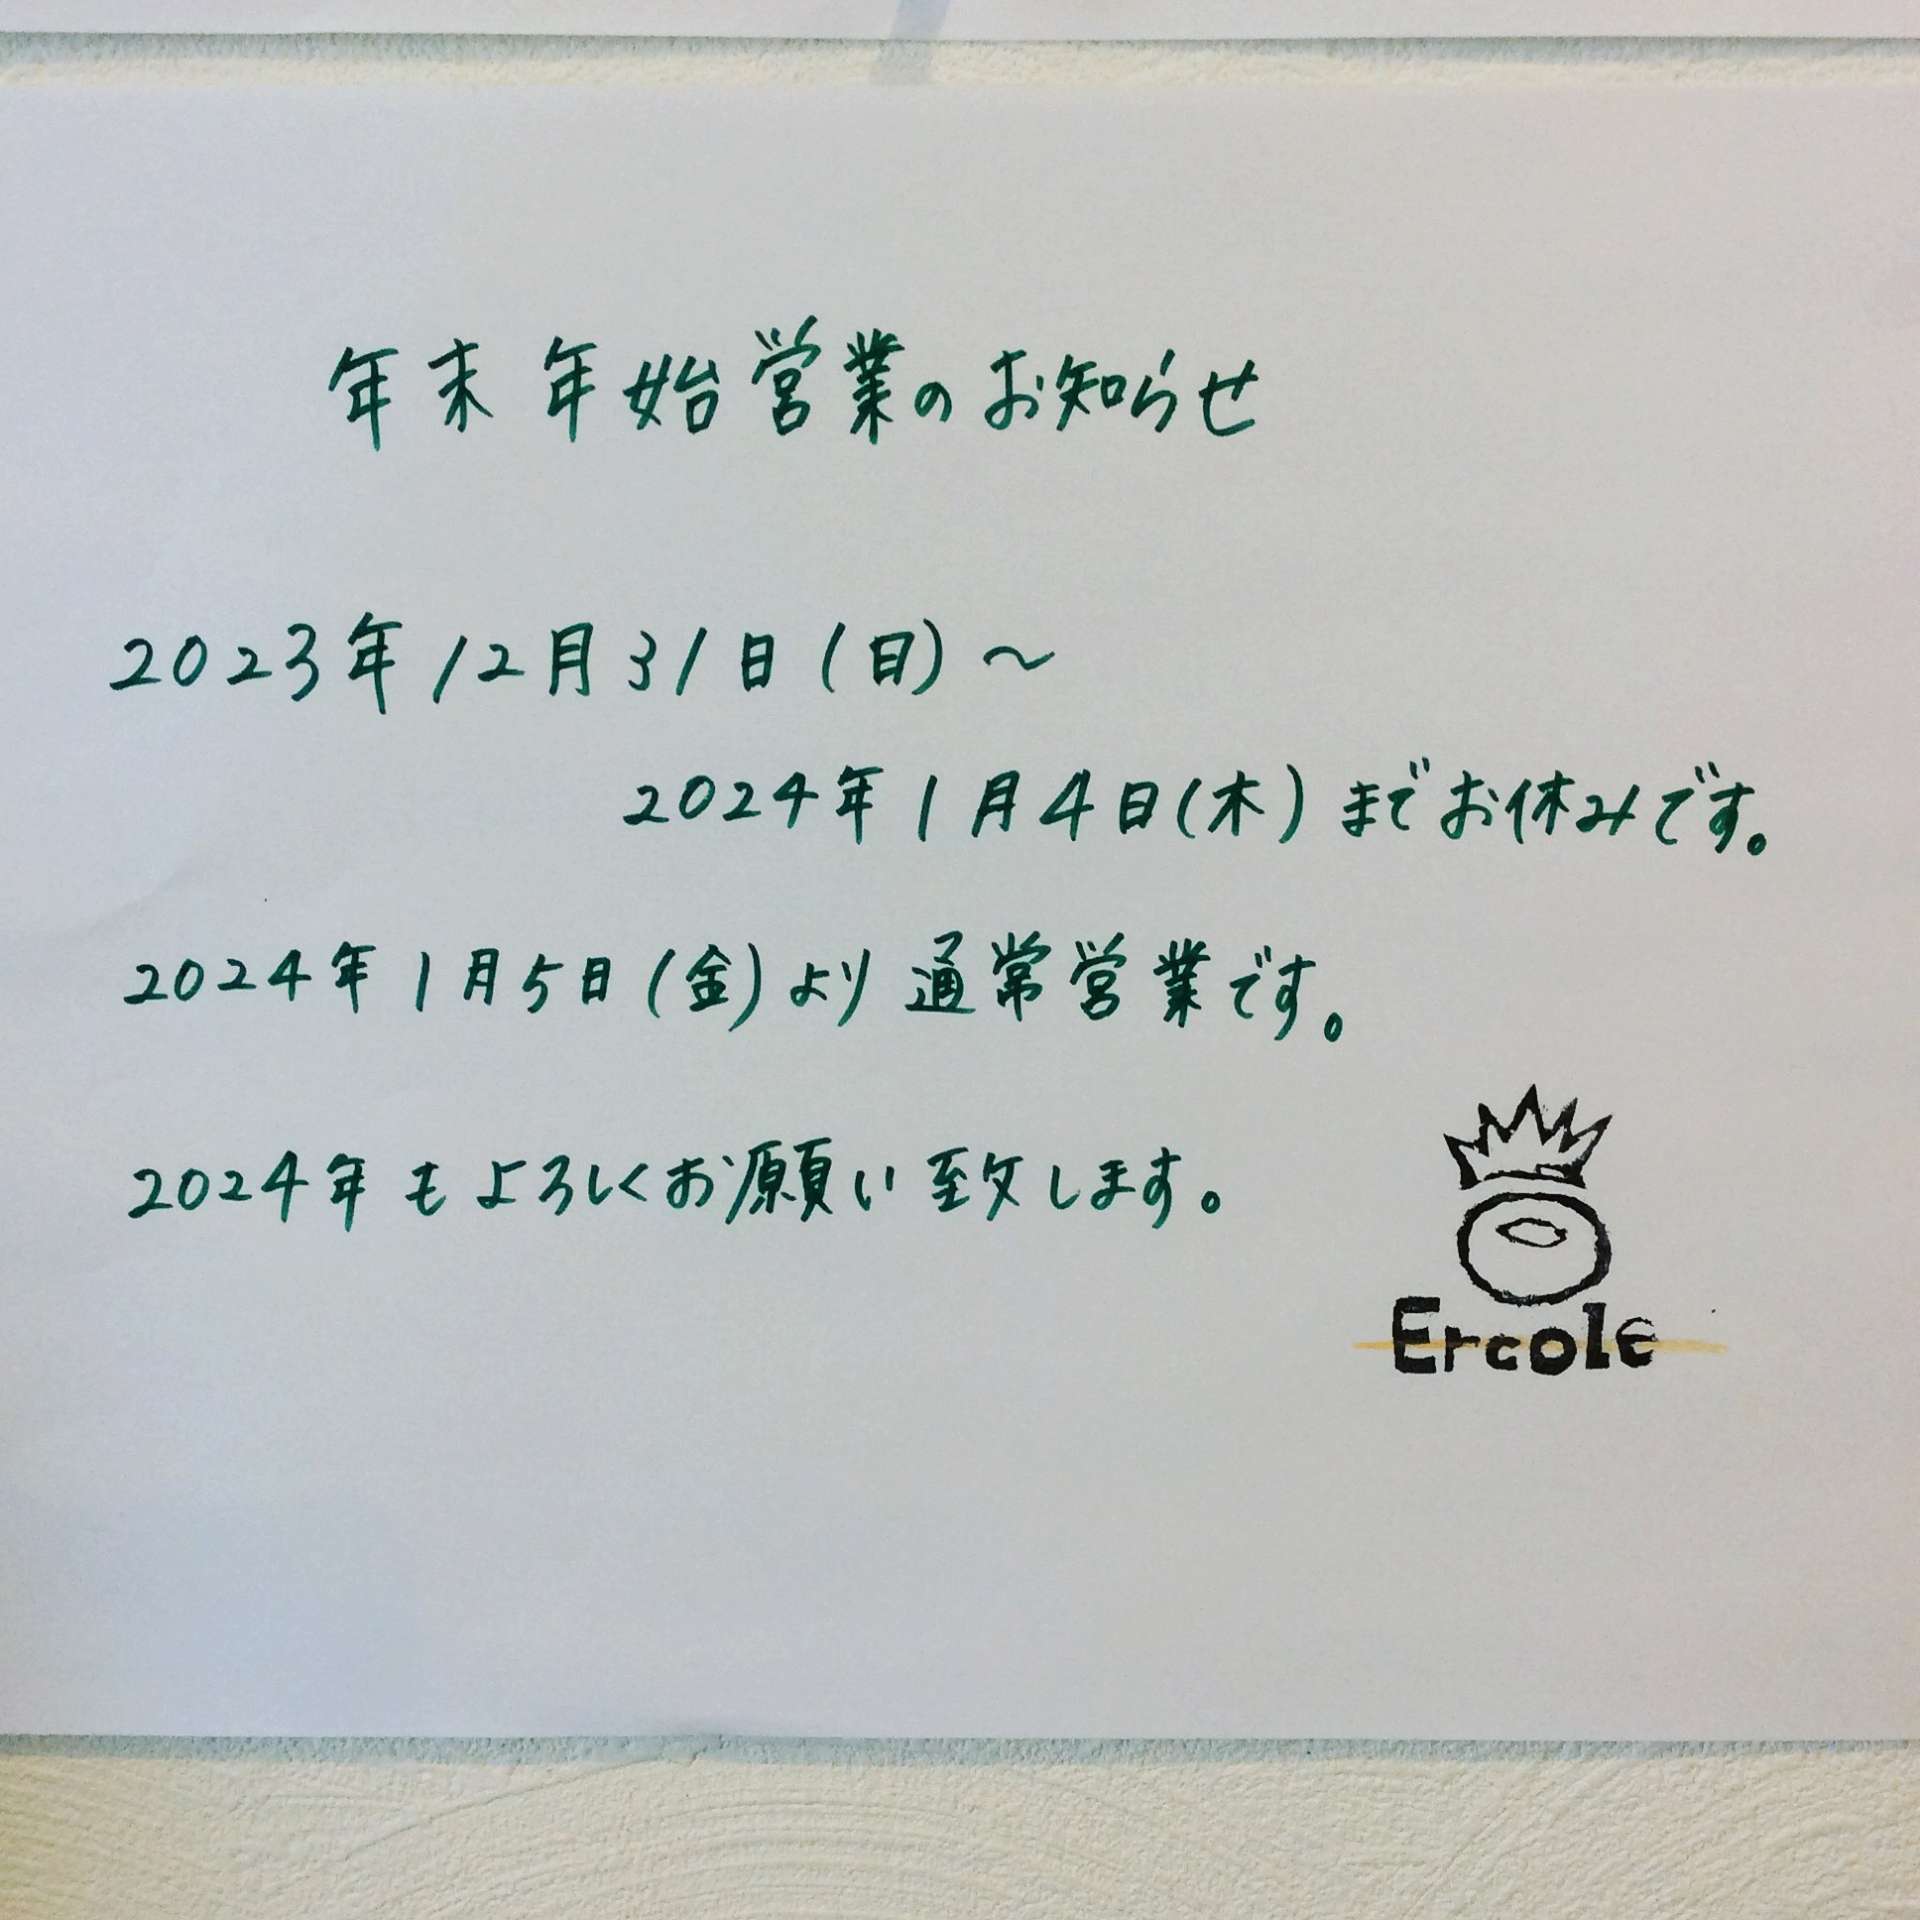 年末年始営業のお知らせ
2023年12月31日(日)～
2024年1月4日(木)までお休みです。
2024年1月5日(金)より通常営業です。
2024年もよろしくお願い致します。
Ercole